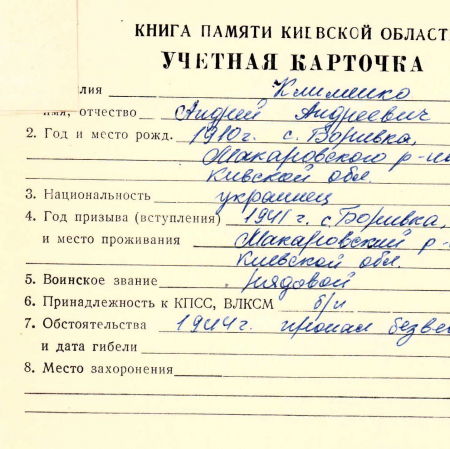 КНИГА ПАМЯТИ КИЕВСКОЙ ОБЛАСТ
УЧЕТНАЯ КАРТОЧКА
лия Клименко
имя, отчество Андрей Андреевич
2. Год и место рожд. 1910г. с. Боривка,
Макаровского р-на
Киевской обл.
3. Национальность украинец
4. Год призыва (вступления) 1941г с. Боривка,
и место проживания Макаровский р-
Киевской обл.
5. Воинское звание рядовой
6. Принадлежность к КПСС, ВЛКСМ б/п
7. Обстоятельства 1944г. пропал безвес
и дата гибели
8. Место захоронения